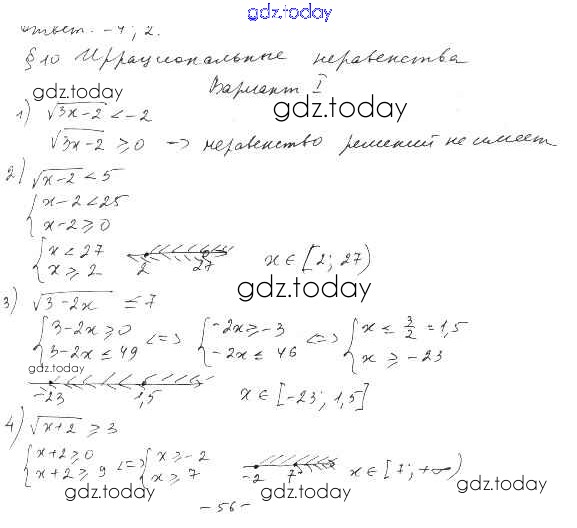 gdz.today
ответ. -4; 2.
§10 Иррациональные неравенства
gdz.today
Вариант I
gdz.today
1) √3x-2 < -2
√3x-2 ≥ 0 → неравенство решений не имеет
2) √x-2 < 5
{ x-2 < 25
x-2 ≥ 0
{ x < 27
x ≥ 2
2 27
x ∈ [2; 27)
gdz.today
gdz.today
3) √3-2x ≤ 7
{ 3-2x ≥ 0
3-2x ≤ 49
<=> { -2x ≥ -3
-2x ≤ 46
<=> { x ≤ 3/2 = 1,5
x ≥ -23
gdz.today
-23 1,5
x ∈ [-23; 1,5]
gdz.today
4) √x+2 ≥ 3
{ x+2 ≥ 0
x+2 ≥ 9
<=> { x ≥ -2
x ≥ 7
-2 7
x ∈ [7; +∞)
gdz.today
gdz.today
gdz.today
-56-